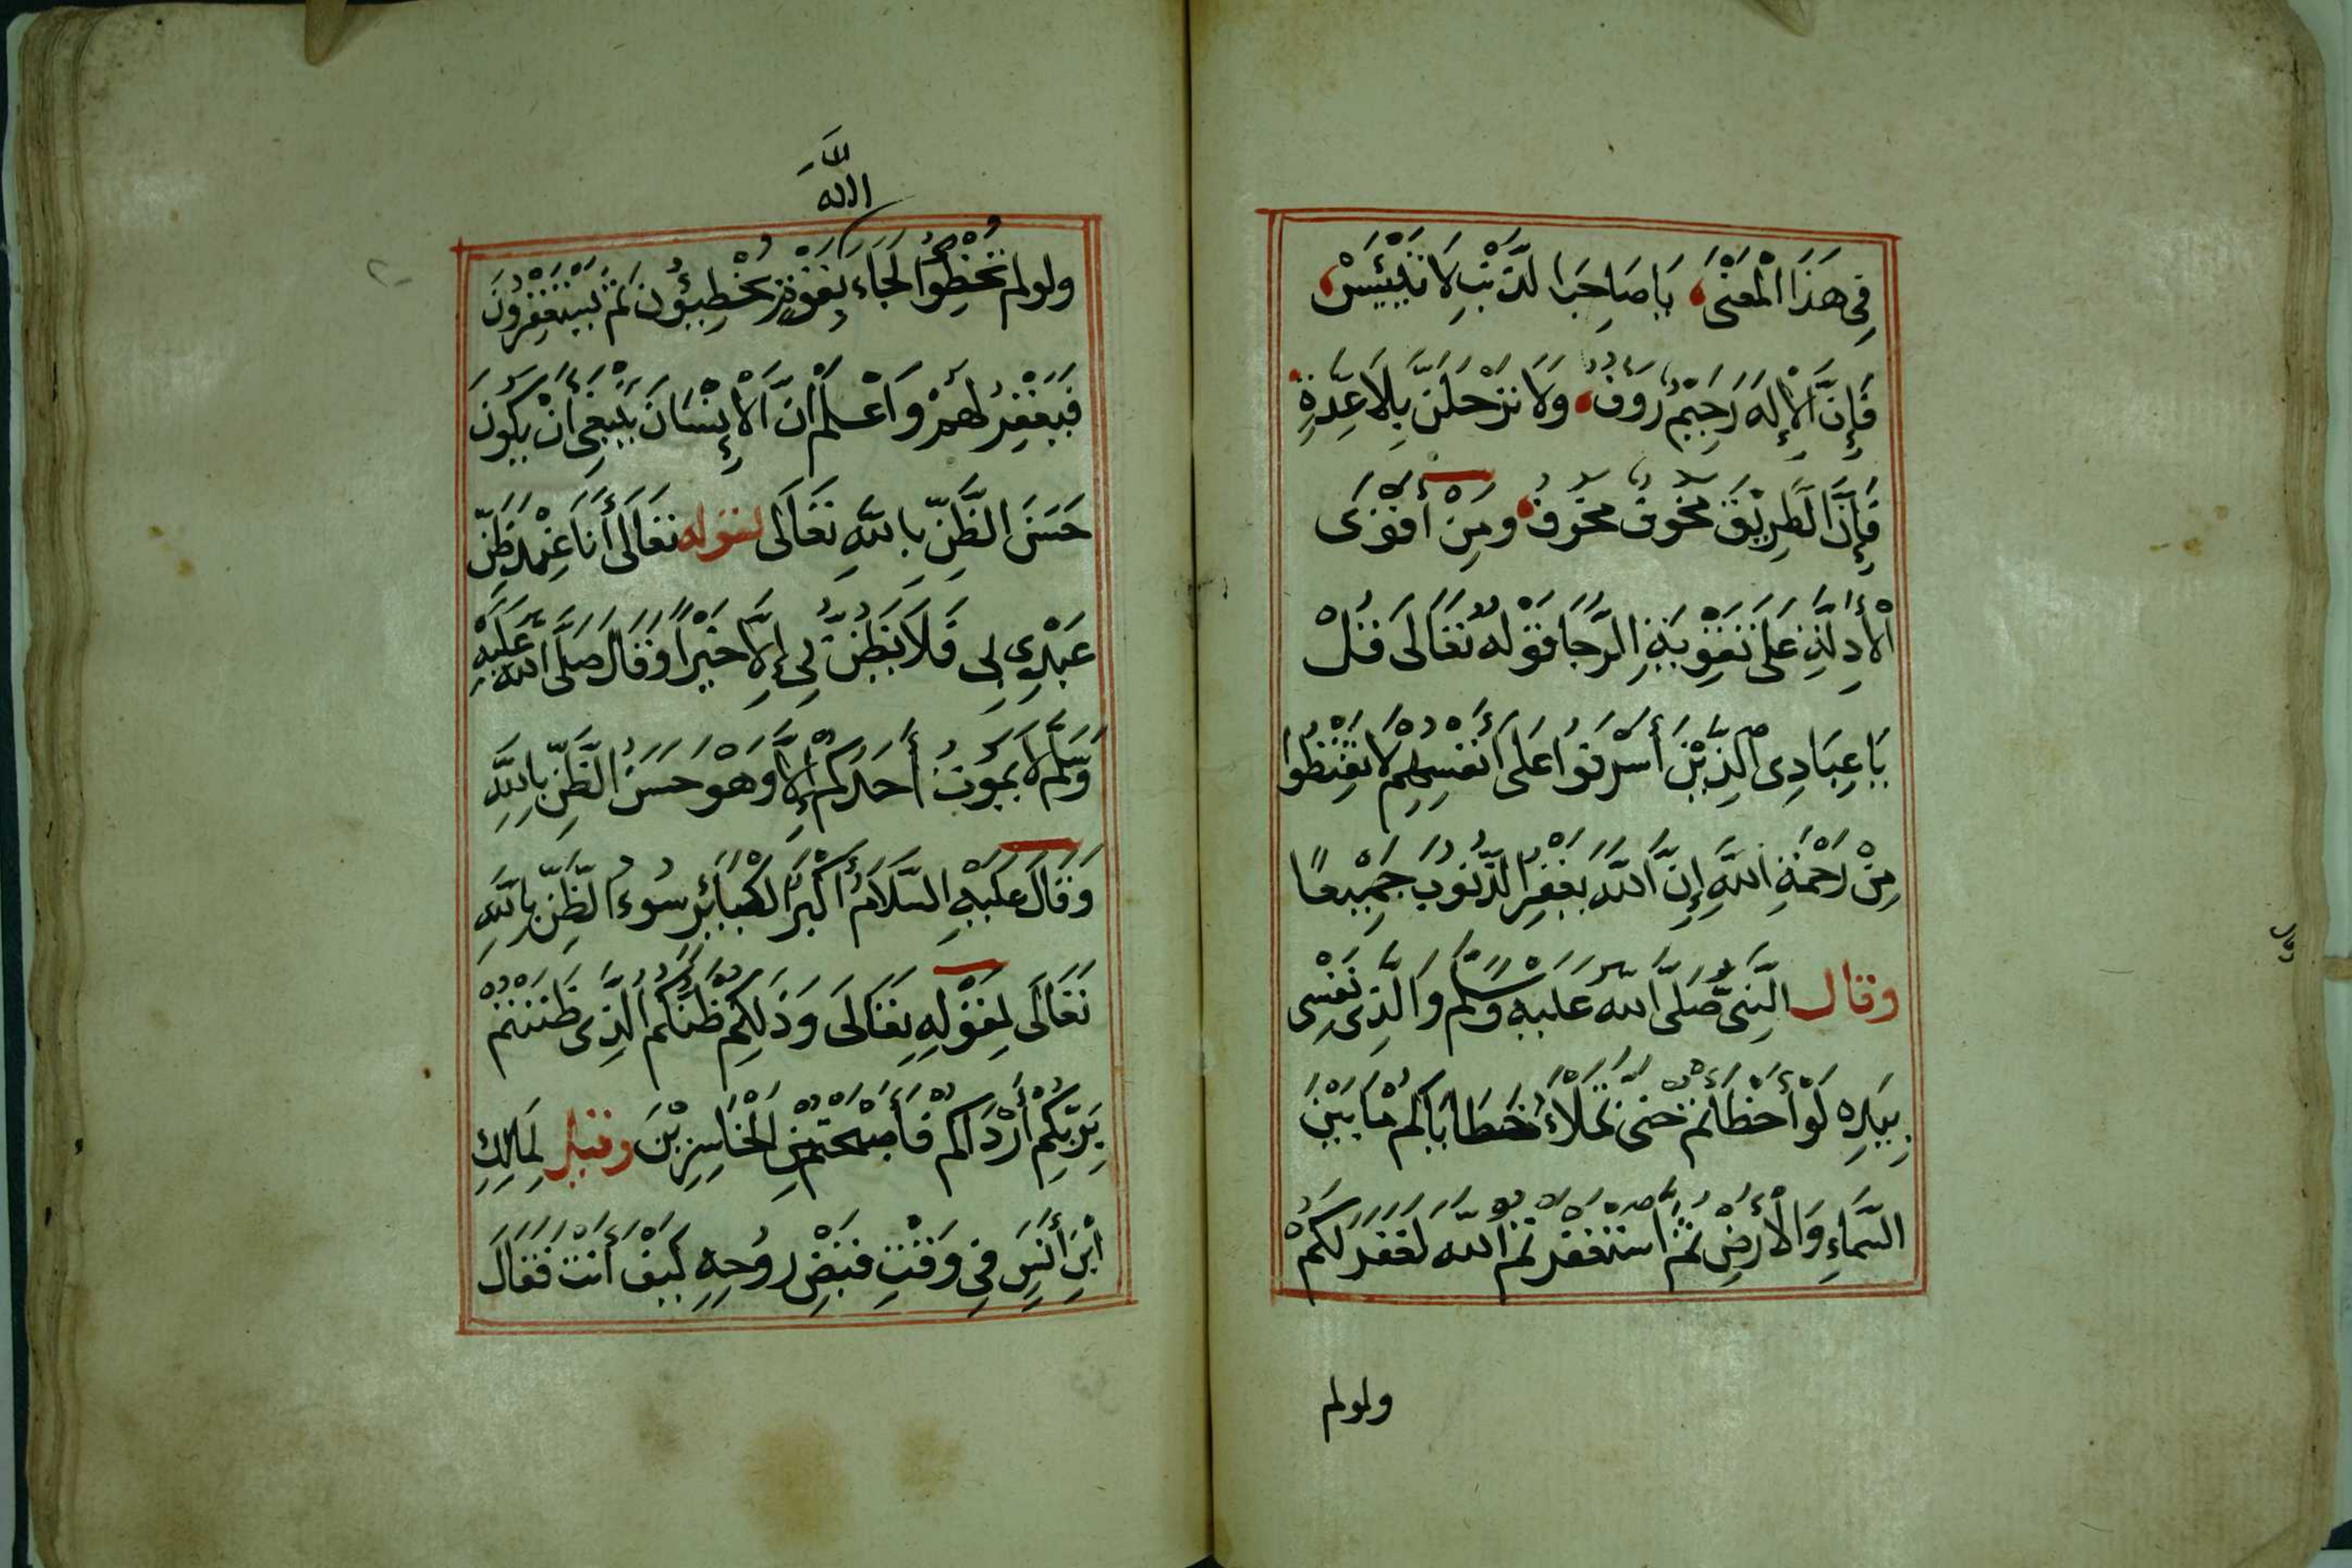 فِي هَذَا الْمَعْنَى يَا صَاحِبَ الذَّنْبِ لَا تَيْئَسَنْ
فَإِنَّ الْإِلَهَ رَحِيمٌ رَؤُفٌ وَلَا تَرْحَلَنَّ بِلَا عِدَّةٍ
فَإِنَّ الطَّرِيقَ مَخُوفٌ مَخُوفٌ وَمِنْ أَقْوَى
الْأَدِلَّةِ عَلَى تَقْوِيَةِ الرَّجَا قَوْلُهُ تَعَالَى قُلْ
يَا عِبَادِيَ الَّذِينَ أَسْرَفُوا عَلَى أَنْفُسِهِمْ لَا تَقْنَطُوا
مِنْ رَحْمَةِ اللَّهِ إِنَّ اللَّهَ يَغْفِرُ الذُّنُوبَ جَمِيعًا
وقال النَّبِيُّ صَلَّى اللَّهُ عَلَيْهِ وَسَلَّمَ وَالَّذِي نَفْسِي
بِيَدِهِ لَوْ أَخْطَأْتُمْ حَتَّى تَمْلَأَ خَطَايَاكُمْ مَا بَيْنَ
السَّمَاءِ وَالْأَرْضِ ثُمَّ اسْتَغْفَرْتُمُ اللَّهَ لَغَفَرَ لَكُمْ
ولولم
اللَّهُ
ولولم تُخْطِؤُا لَجَاءَ بِقَوْمٍ يُخْطِيئُونَ ثُمَّ يَسْتَغْفِرُونَ
فَيَغْفِرُ لَهُمْ وَاعْلَمْ أَنَّ الْإِنْسَانَ يَنْبَغِي أَنْ يَكُونَ
حَسَنَ الظَّنِّ بِاللَّهِ تَعَالَى لقوله تَعَالَى أَنَا عِنْدَ ظَنِّ
عَبْدِي بِي فَلَا يَظُنُّ بِي إِلَّا خَيْرًا وَقَالَ صَلَّى اللَّهُ عَلَيْهِ
وَسَلَّمَ لَا يَمُوتُ أَحَدُكُمْ إِلَّا وَهْوَ حَسَنُ الظَّنِّ بِاللَّهِ
وَقَالَ عَلَيْهِ السَّلَامُ أَكْبَرُ الْكَبَائِرِ سُوءُ الظَّنِّ بِاللَّهِ
تَعَالَى لِقَوْلِهِ تَعَالَى وَذَلِكُمْ ظَنُّكُمُ الَّذِي ظَنَنْتُمْ
بِرَبِّكُمْ أَرْدَاكُمْ فَأَصْبَحْتُمْ مِنَ الْخَاسِرِينَ وقيل لِمَالِكِ
ابْنِ أَنَسٍ فِي وَقْتِ قَبْضِ رُوحِهِ كَيْفَ أَنْتَ فَقَالَ